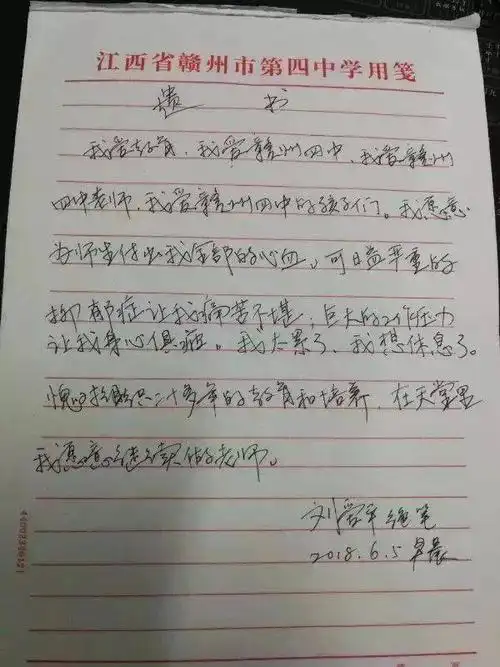 江西省赣州市第四中学用笺
遗 书
我爱教育、我爱赣州四中、我爱赣州
四中老师、我爱赣州四中的孩子们。我愿意
为师生付出我全部的心血。可日益严重的
抑郁症让我痛苦不堪；巨大的工作压力
让我身心俱疲。我太累了、我想休息了。
愧对组织二十多年的教育和培养，在天堂里
我愿意继续做老师。
刘爱平绝笔
2018.6.5 早晨